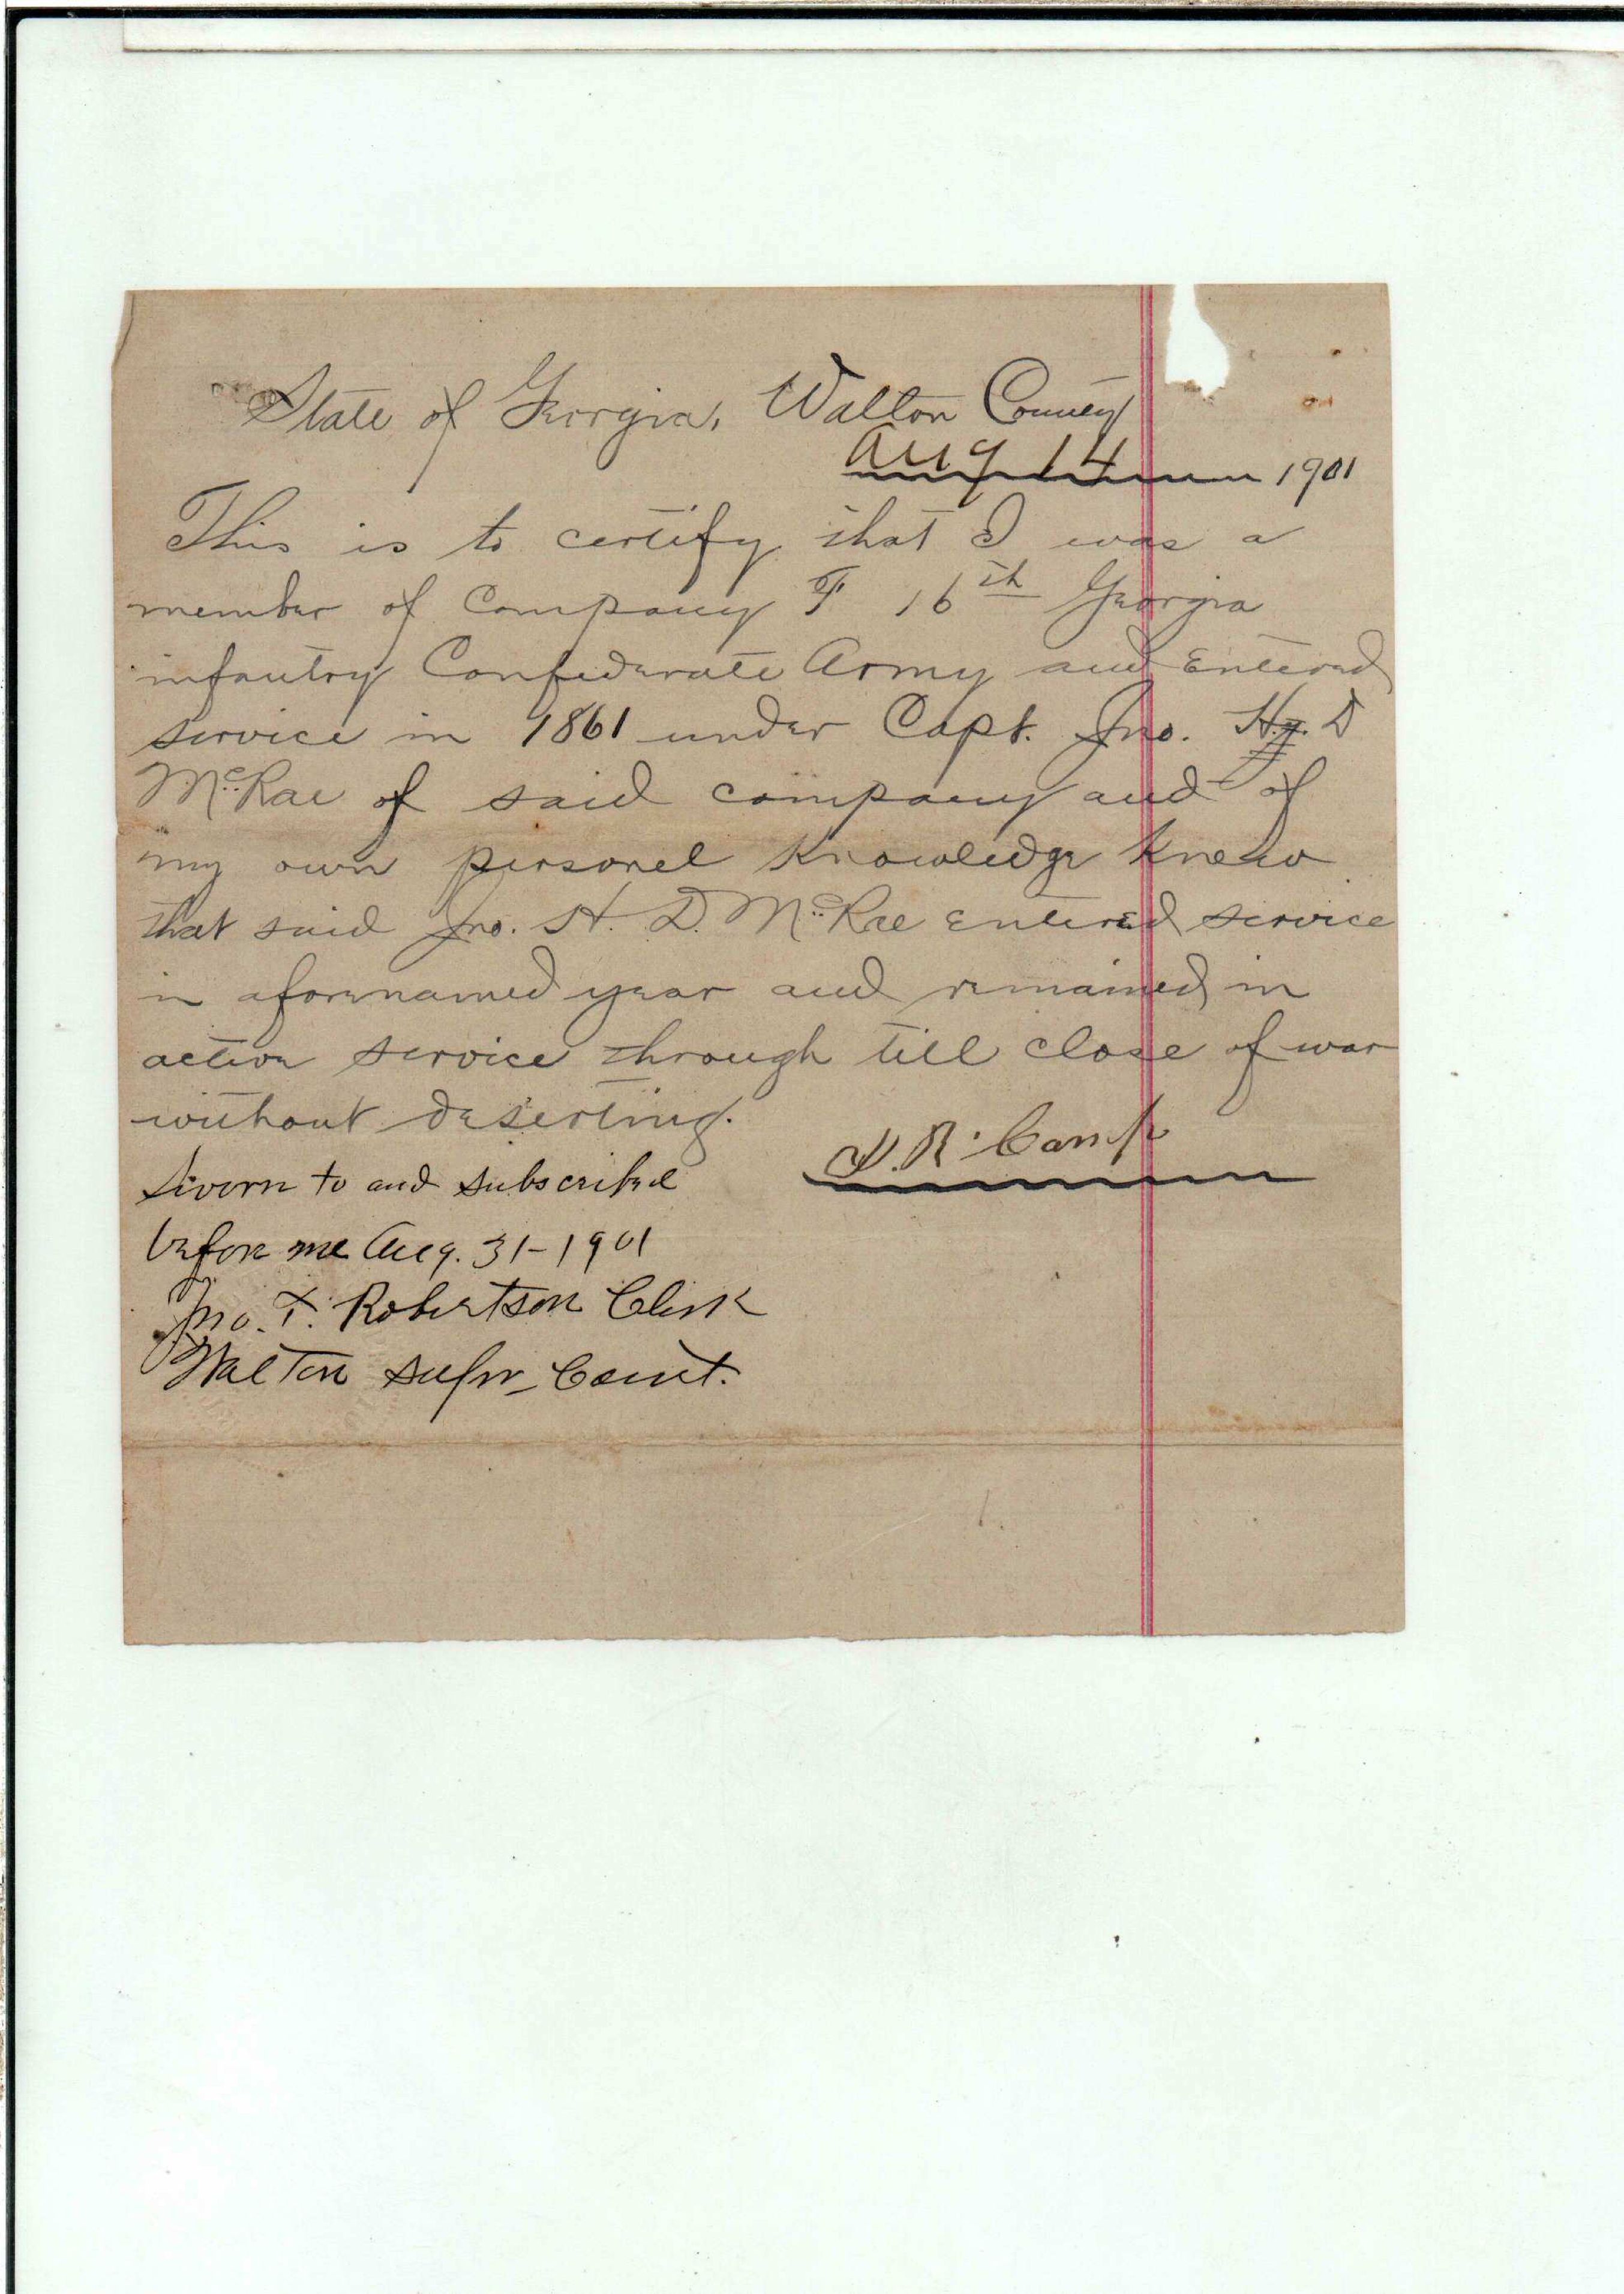 State of Georgia, Walton County
Aug 14 1901
This is to certify that I was a
member of Company F 16th Georgia
infantry Confederate Army and Entered
service in 1861 under Capt. Jno. H. D
McRae of said company and of
my own personel Knowledge Knew
that said Jno. H. D. McRae Entered service
in aforenamed year and remained in
active service through till close of war
without deserting.
R. Camp
Sworn to and subscribed
before me Aug. 31-1901
Jno. T. Robertson Clerk
Walton Supr Court.